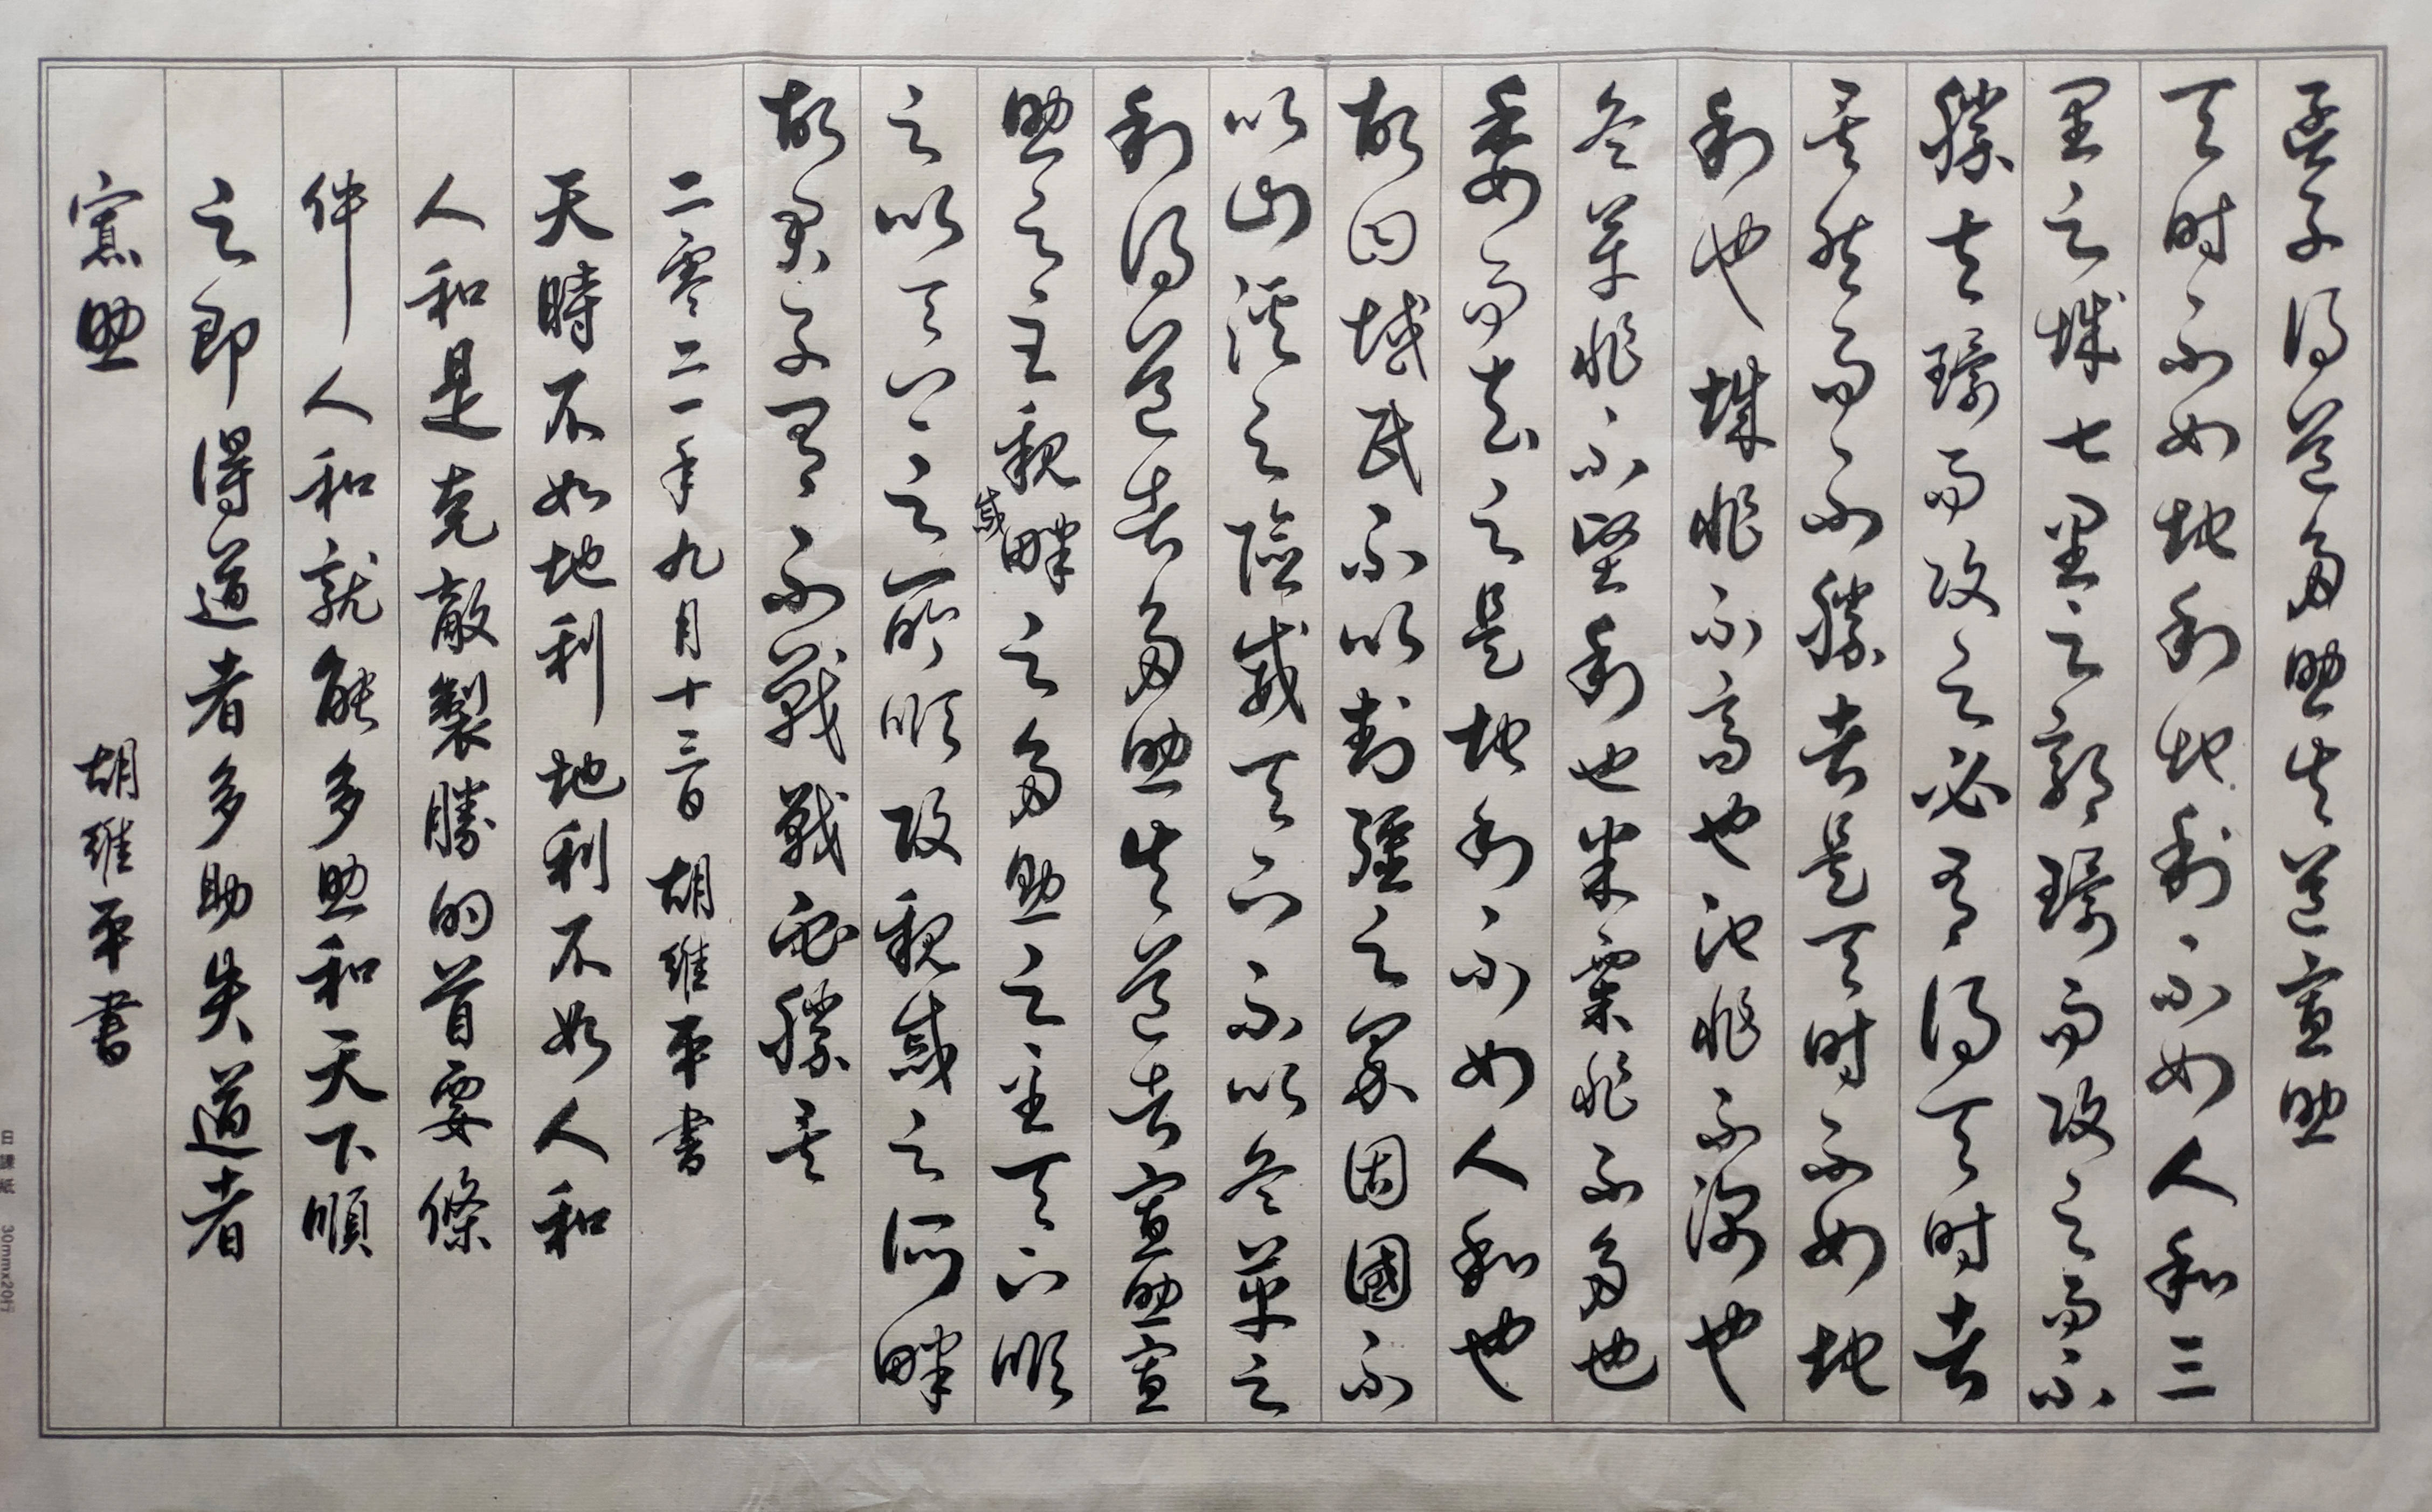 孟子得道多助失道寡助
天时不如地利地利不如人和三
里之城七里之郭環而攻之而不
勝夫環而攻之必有得天时者
矣然而不勝者是天时不如地
利也城非不高也池非不深也
兵革非不堅利也米粟非不多也
委而去之是地利不如人和也
故曰域民不以封疆之界固國不
以山溪之險威天下不以兵革之
利得道者多助失道者寡助寡
助之至親戚畔之多助之至天下順
之以天下之所順攻親戚之所畔
故君子有不戰戰必勝矣
二零二一年九月十三日 胡維平書
天時不如地利地利不如人和
人和是克敵製勝的首要條
件人和就能多助和天下順
之即得道者多助失道者
寡助 胡維平書
日課紙 30mmx20行